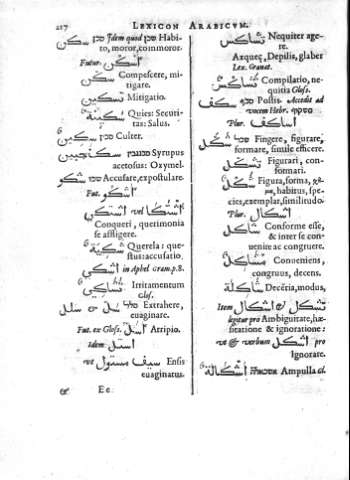 217 LEXICON ARABICVM.
سكن סכן Idem quod סכן Habi-
to, moror, commoror.
Futur. اسكن
سكن Compescere, mi-
tigare.
تسكين Mitigatio.
سكينة Quies: Securi-
tas: Salus.
سكين סכין Culter.
سكنجبين Syrupus
acetosus: Oxymel.
شكو Accusare, expostulare.
Fut. اشكو
اشتكى vel اشتكا
Conqueri, querimonia
se affligere.
شكية Querela: que-
stus: accusatio.
اشكي in Aphel Gram. p. 8.
Irritamentum
Glos.
سلل و سل Extrahere,
euaginare.
Fut. ex Gloss. اسل Arripio.
Idem استل
vt سيف مستول Ensis
euaginatus.
& Ee
تشاكس Nequiter age-
re.
Depilis, glaber
Lex. Granat.
Compilatio, ne-
quitia Gloss.
سكف Postis. Accedis ad
vocem Hebr. משקוף
Plur. اساكف
شكل Fingere, figurare,
formare, simile efficere.
تشكل Figurari, con-
formari.
شكل Figura, forma,
habitus, spe-
cies, exemplar, similitudo.
Plur. اشكال
شاكل Conforme esse,
& inter se con-
uenire ac congruere.
مشاكل Conueniens,
congruus, decens.
شاكلة modus,
Item اشكال & تشكل
pro Ambiguitate, hæ-
sitatione & ignoratione:
vt & verbum اشكل pro
Ignorare.
Ampulla Gl.